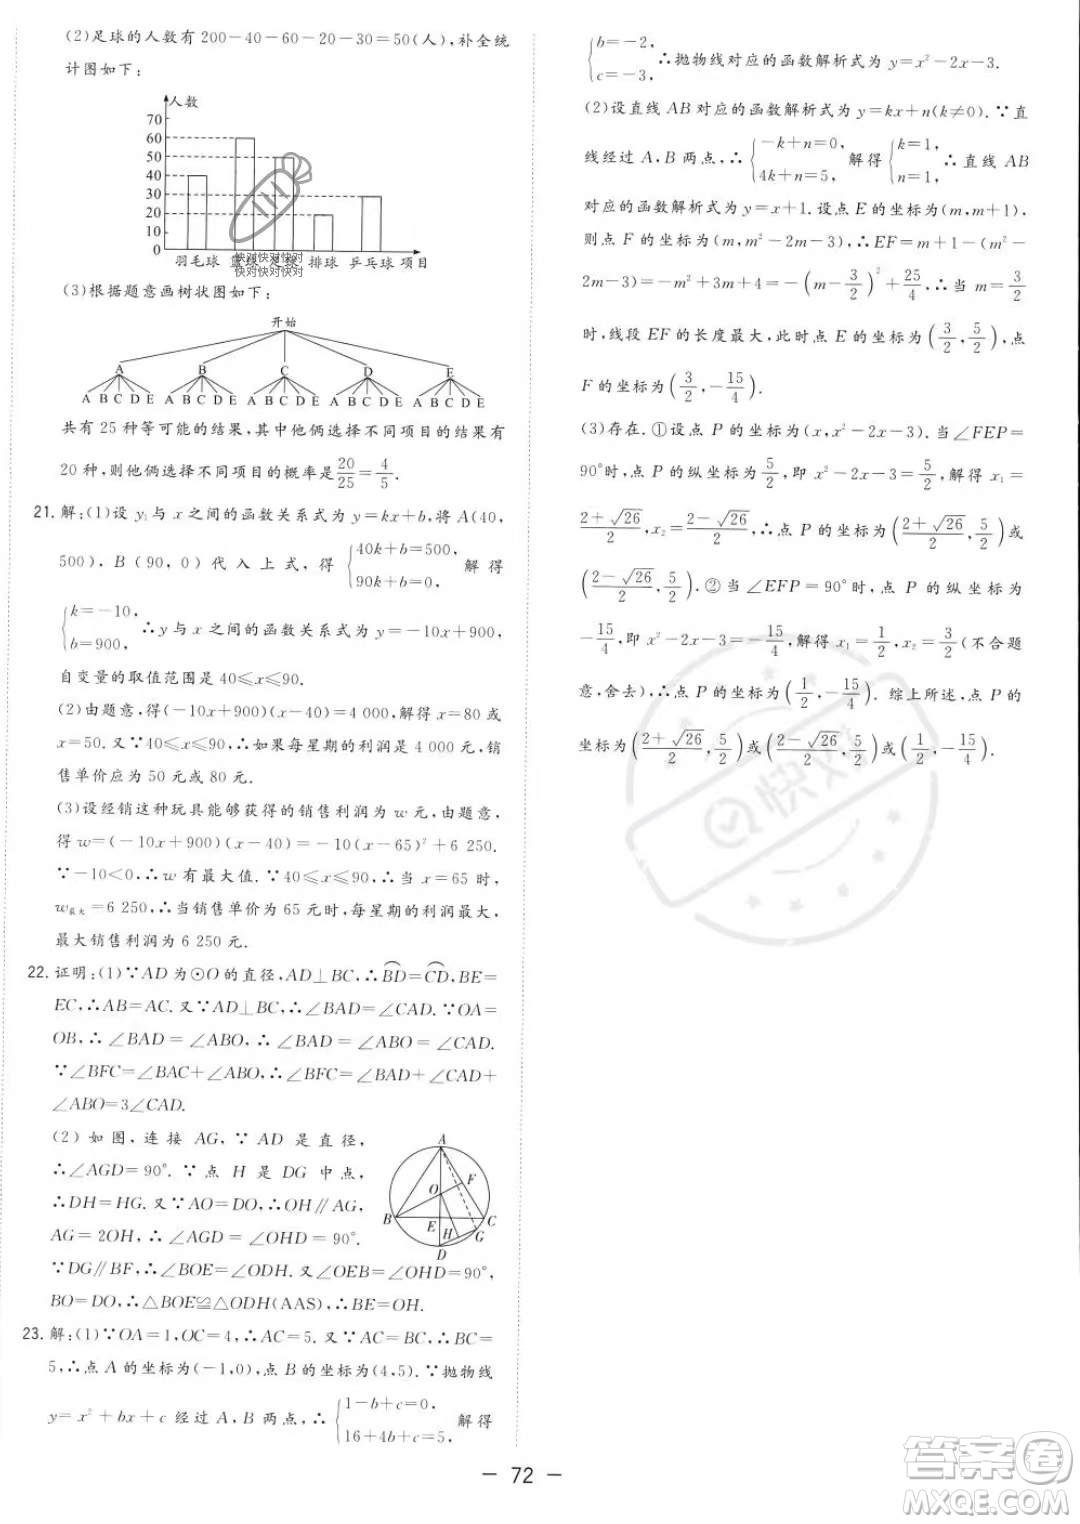 (2)足球的人数有 200－40－60－20－30＝50(人),补全统
计图如下:
人数
70
60
50
40
30
20
10
0
羽毛球 篮球 足球 排球 乒乓球 项目
快对快对快对
快对快对快对
(3)根据题意画树状图如下:
开始
A B C D E
A B C D E A B C D E A B C D E A B C D E A B C D E
共有 25 种等可能的结果,其中他俩选择不同项目的结果有
20 种,则他俩选择不同项目的概率是 20/25＝4/5.
21. 解:(1)设 y₁与 x 之间的函数关系式为 y＝kx＋b,将 A(40,
500), B(90, 0) 代入上式, 得 {40k＋b＝500, 90k＋b＝0, 解得
{k＝－10, b＝900, ∴y 与 x 之间的函数关系式为 y＝－10x＋900,
自变量的取值范围是 40≤x≤90.
(2)由题意,得(－10x＋900)(x－40)＝4 000,解得 x＝80 或
x＝50. 又∵40≤x≤90,∴如果每星期的利润是 4 000 元,销
售单价应为 50 元或 80 元.
(3)设经销这种玩具能够获得的销售利润为 w 元,由题意,
得 w＝(－10x＋900)(x－40)＝－10(x－65)²＋6 250.
∵－10＜0,∴w 有最大值. ∵40≤x≤90,∴当 x＝65 时,
w最大＝6 250,∴当销售单价为 65 元时,每星期的利润最大,
最大销售利润为 6 250 元.
22. 证明:(1)∵AD 为⊙O 的直径,AD⊥BC,∴B͡D＝C͡D,BE＝
EC,∴AB＝AC. 又∵AD⊥BC,∴∠BAD＝∠CAD. ∵OA＝
OB,∴∠BAD＝∠ABO,∴∠BAD＝∠ABO＝∠CAD.
∵∠BFC＝∠BAC＋∠ABO,∴∠BFC＝∠BAD＋∠CAD＋
∠ABO＝3∠CAD.
(2) 如图, 连接 AG, ∵ AD 是直径,
∴∠AGD＝90°. ∵ 点 H 是 DG 中点,
∴DH＝HG. 又∵AO＝DO,∴OH∥AG,
AG＝2OH,∴∠AGD＝∠OHD＝90°.
∵DG∥BF,∴∠BOE＝∠ODH. 又∵∠OEB＝∠OHD＝90°,
BO＝DO,∴△BOE≌△ODH(AAS),∴BE＝OH.
A
F
O
B
E
H
C
G
D
23. 解:(1)∵OA＝1,OC＝4,∴AC＝5. 又∵AC＝BC,∴BC＝
5,∴点 A 的坐标为(－1,0),点 B 的坐标为(4,5). ∵抛物线
y＝x²＋bx＋c 经过 A,B 两点,∴{1－b＋c＝0, 16＋4b＋c＝5, 解得
{b＝－2, c＝－3, ∴抛物线对应的函数解析式为 y＝x²－2x－3.
(2)设直线 AB 对应的函数解析式为 y＝kx＋n(k≠0). ∵直
线经过 A,B 两点,∴{－k＋n＝0, 4k＋n＝5, 解得{k＝1, n＝1, ∴直线 AB
对应的函数解析式为 y＝x＋1. 设点 E 的坐标为(m,m＋1),
则点 F 的坐标为(m,m²－2m－3),∴EF＝m＋1－(m²－
2m－3)＝－m²＋3m＋4＝－(m－3/2)²＋25/4,∴当 m＝3/2
时,线段 EF 的长度最大,此时点 E 的坐标为(3/2,5/2),点
F 的坐标为(3/2,－15/4).
(3)存在. ①设点 P 的坐标为(x,x²－2x－3). 当∠FEP＝
90°时,点 P 的纵坐标为5/2,即 x²－2x－3＝5/2,解得 x₁＝
(2＋√26)/2,x₂＝(2－√26)/2,∴点 P 的坐标为((2＋√26)/2,5/2)或
((2－√26)/2,5/2). ②当∠EFP＝90°时,点 P 的纵坐标为
－15/4,即 x²－2x－3＝－15/4,解得 x₁＝1/2,x₂＝3/2(不合题
意,舍去),∴点 P 的坐标为(1/2,－15/4). 综上所述,点 P 的
坐标为((2＋√26)/2,5/2)或((2－√26)/2,5/2)或(1/2,－15/4).
快对
－ 72 －
答案圈
MXQE.COM